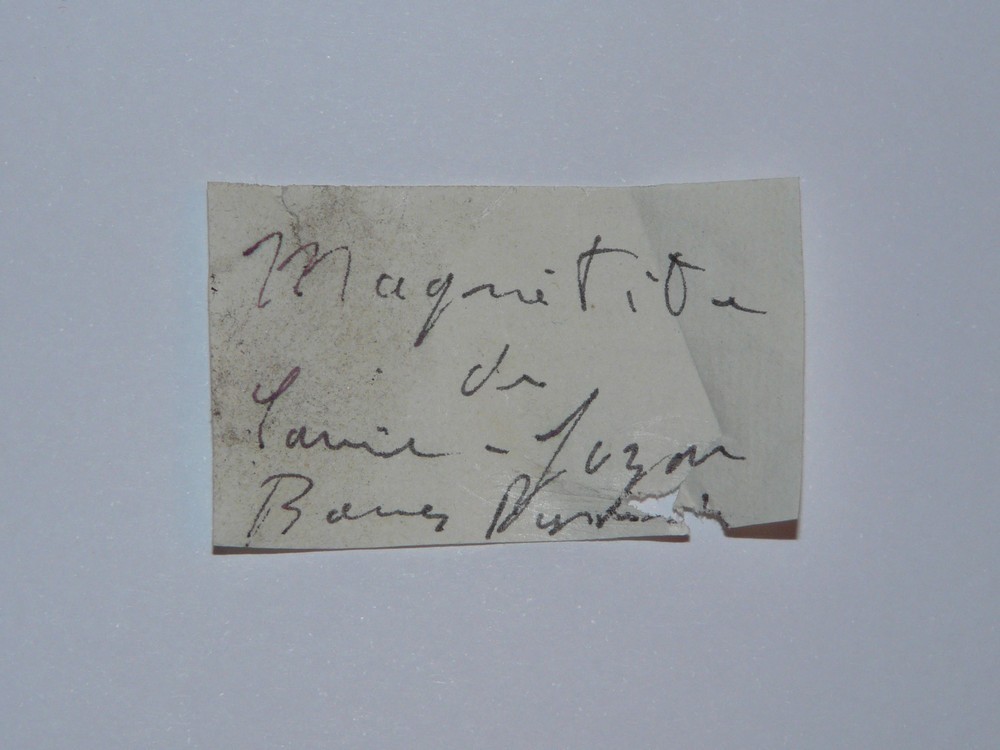 Magnétite
de
Louvie - Juzon
Basses Pyrénées